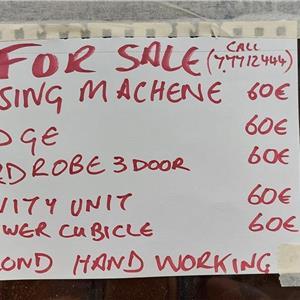 FOR SALE CALL (77712444)
SING MACHENE 60€
DGE 60€
RDROBE 3 DOOR 60€
NITY UNIT 60€
WER CUBICLE 60€
OND HAND WORKING